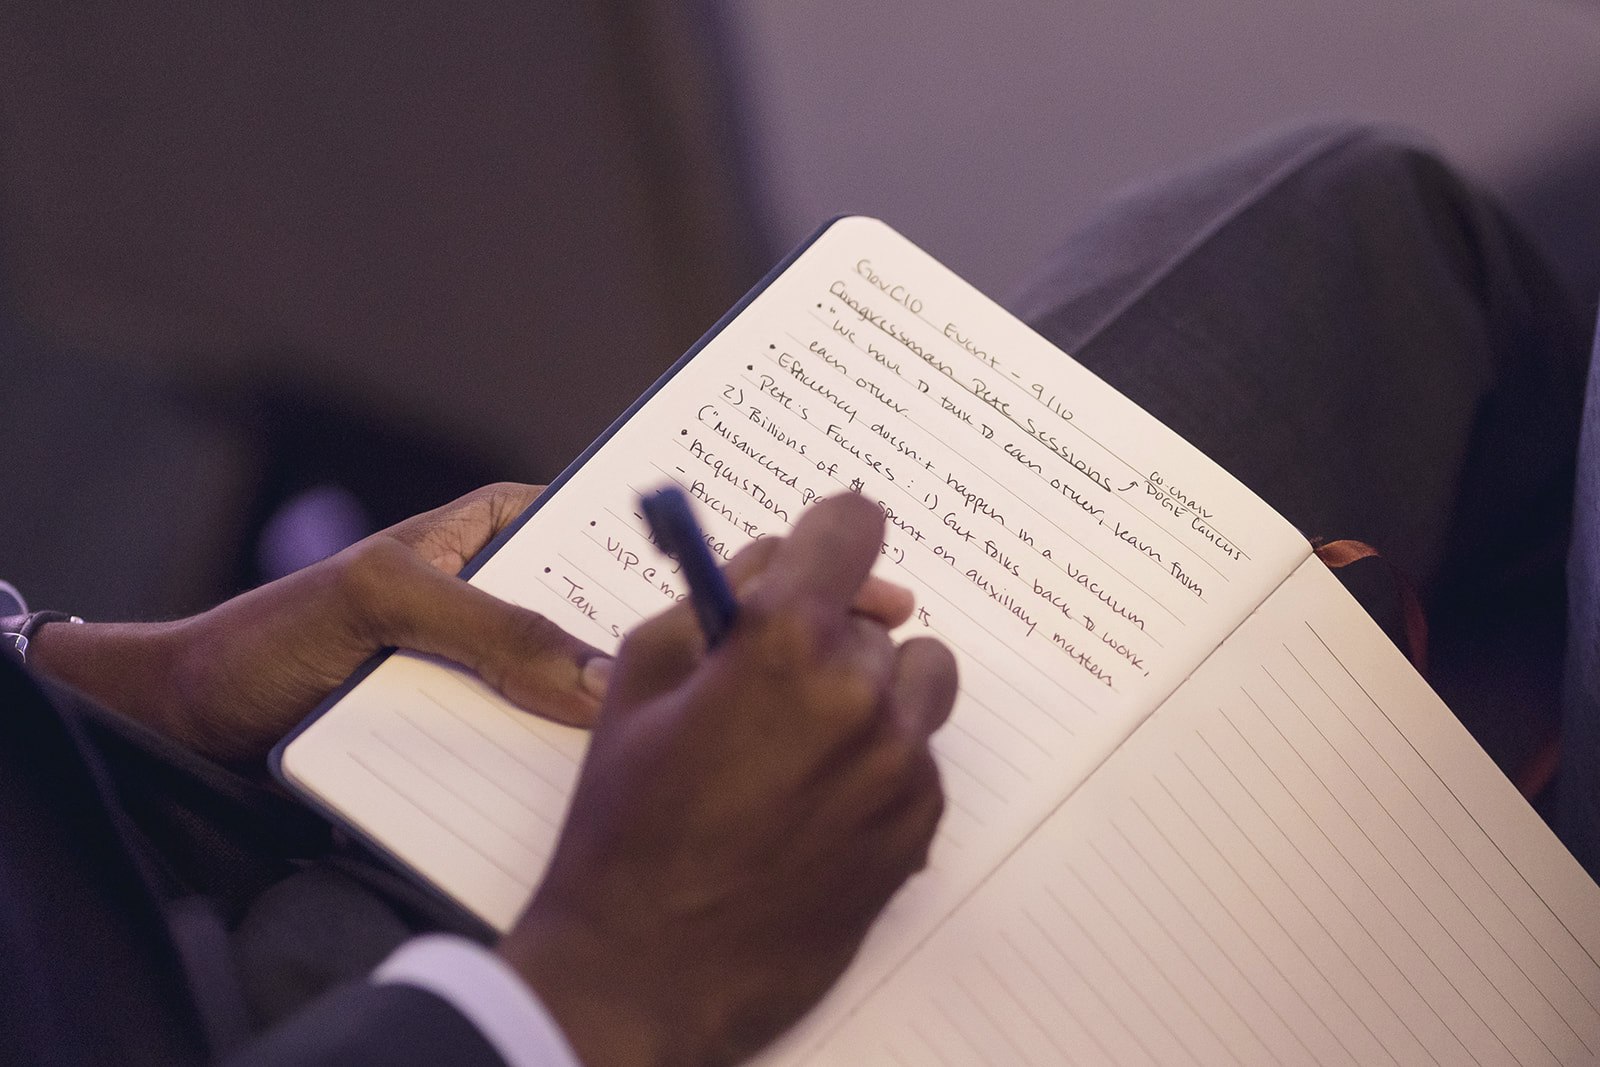 GovCIO Event - 9/10
Congressman Pete Sessions
co-chair
DOGE Caucus
• "We have to talk to each other, learn from
each other.
• Efficiency doesn't happen in a vacuum
• Pete's Focuses: 1) Get folks back to work,
2) Billions of $ spent on auxillary matters
("Misdirected
• Acquistion
- Architec
-
•
VIP @
• Task